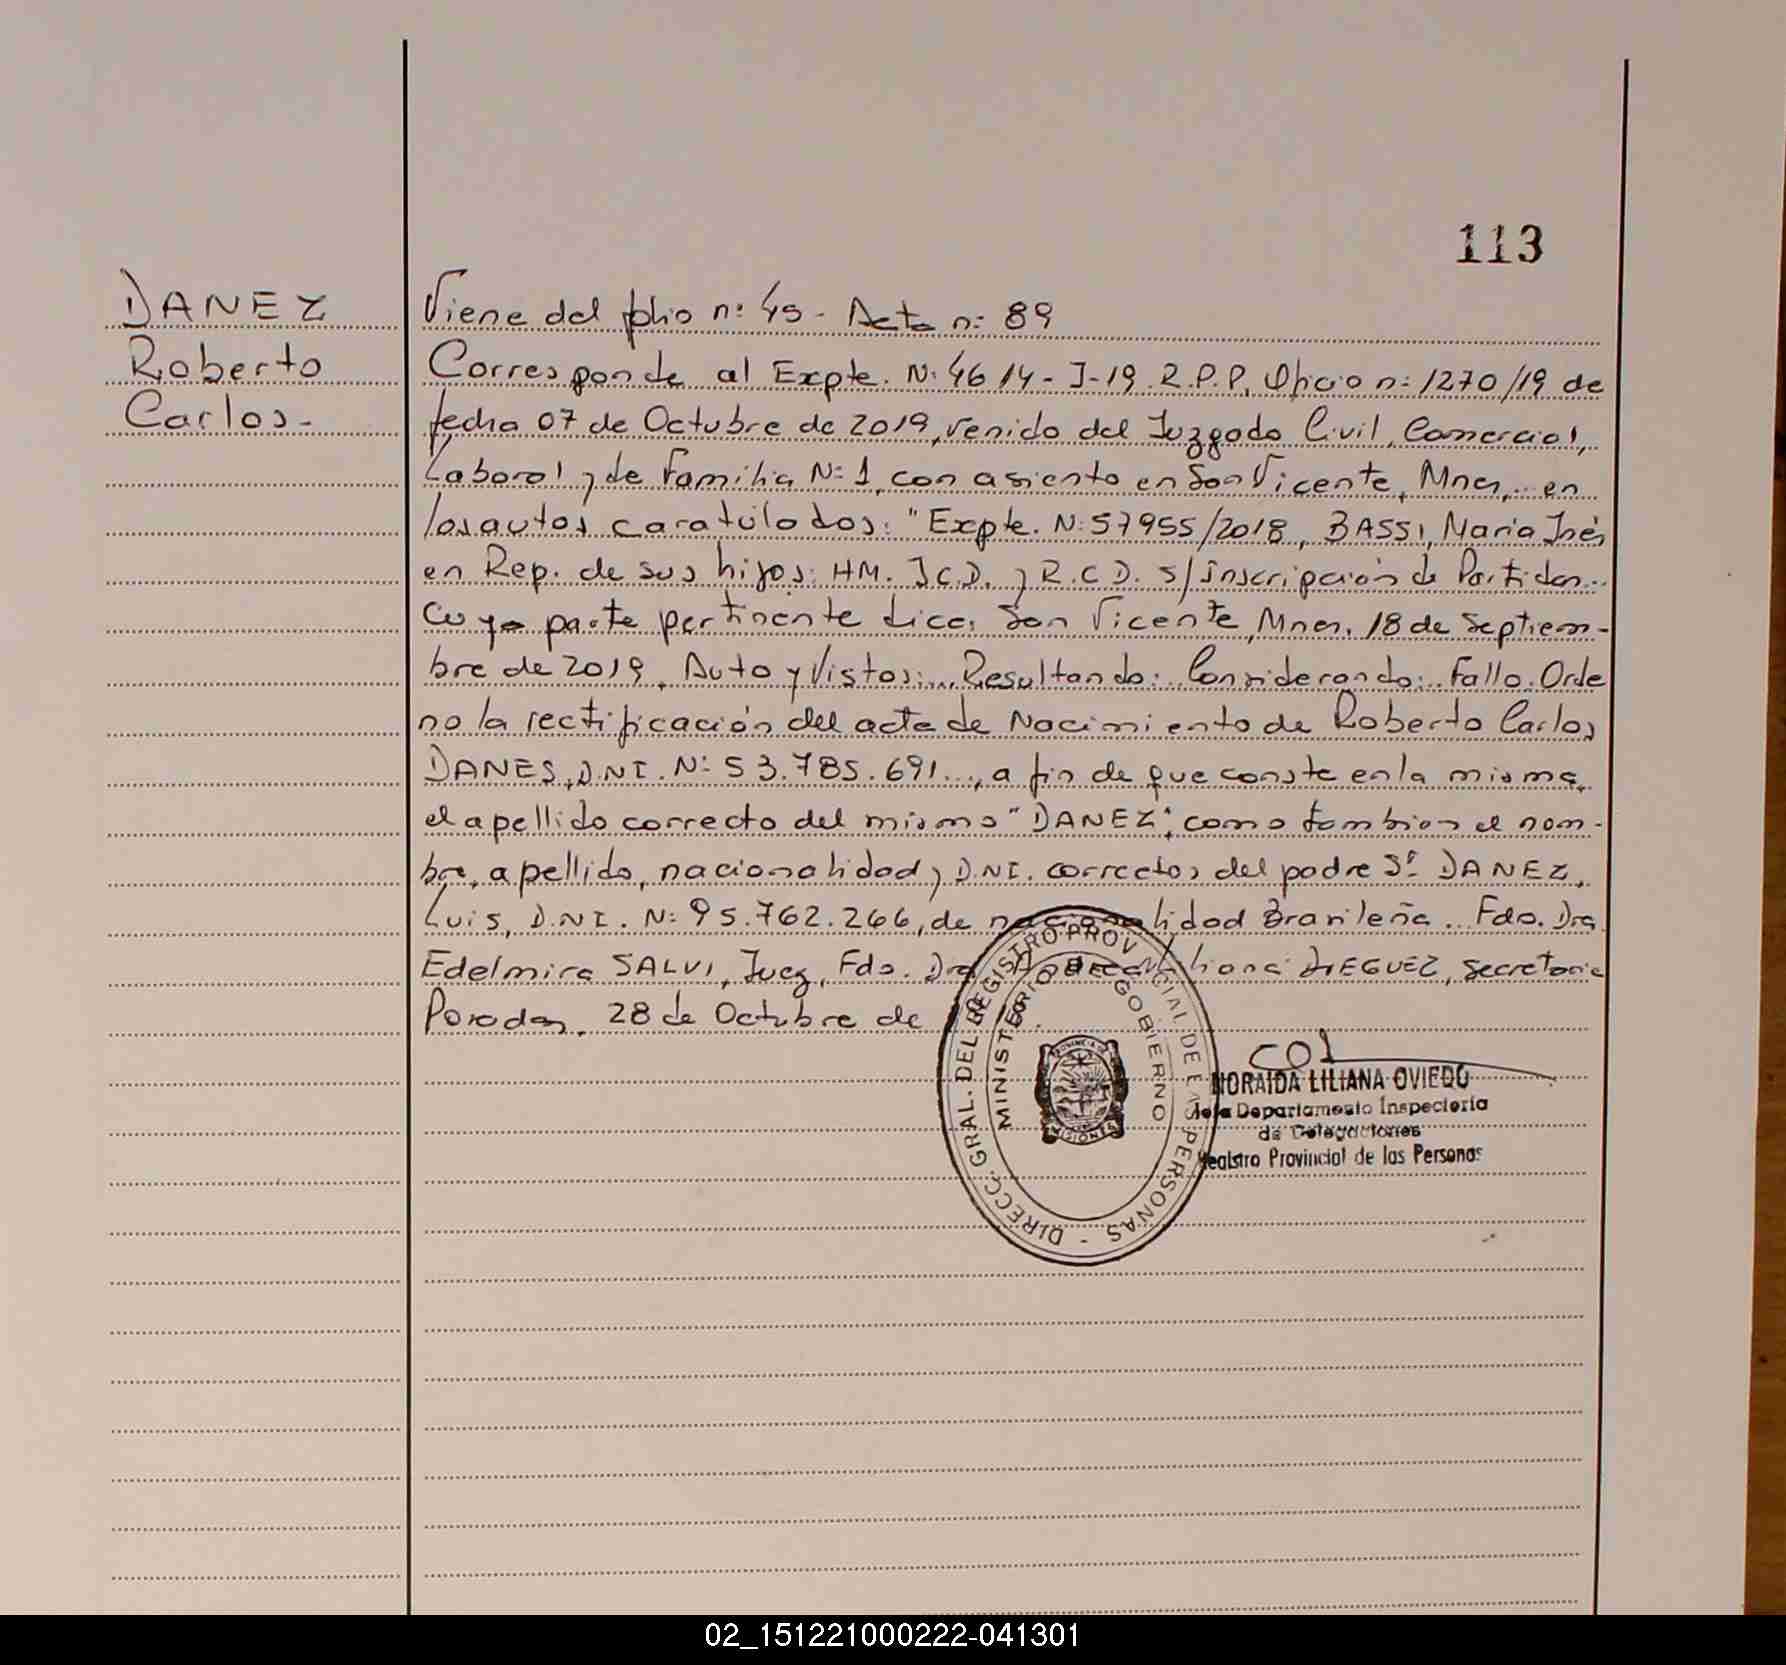 113
DANEZ
Roberto
Carlos.-
Viene del folio n: 45 - Acta n: 89
Corresponde al Expte. N: 4614-J-19 R.P.P, Oficio n: 1270/19 de
fecha 07 de Octubre de 2019, venido del Juzgado Civil, Comercial,
Laboral y de Familia N: 1, con asiento en San Vicente, Mnes, en
los autos caratulados: "Expte. N: 57955/2018, BASSI, Maria Inés
en Rep. de sus hijos: H.M. J.C.D. y R.C.D. S/ Inscripción de Partidas...
Cuya parte pertinente dice: San Vicente, Mnes, 18 de Septiem-
bre de 2019. Auto y Vistos:... Resultando: Considerando:.. Fallo. Orde
no la rectificación del acta de Nacimiento de Roberto Carlos
DANES, D.N.I. N: 53.785.691..., a fin de que conste en la misma,
el apellido correcto del mismo "DANEZ", como tambien el nom-
bre, apellido, nacionalidad y D.N.I. correctos del padre Sr DANEZ,
Luis, D.N.I. N: 95.762.266, de nacionalidad Brasileña... Fdo. Dra
Edelmira SALVI, Juez, Fdo. Dra Liliana DIEGUEZ, Secretaria
Posadas, 28 de Octubre de
DIRECC. GRAL. DEL REGISTRO PROVINCIAL DE LAS PERSONAS -
MINISTERIO DE GOBIERNO
PROVINCIA DE
MISIONES
NORAIDA LILIANA OVIEDO
Jefa Departamento Inspectoría
de Delegaciones
Registro Provincial de las Personas
02_151221000222-041301